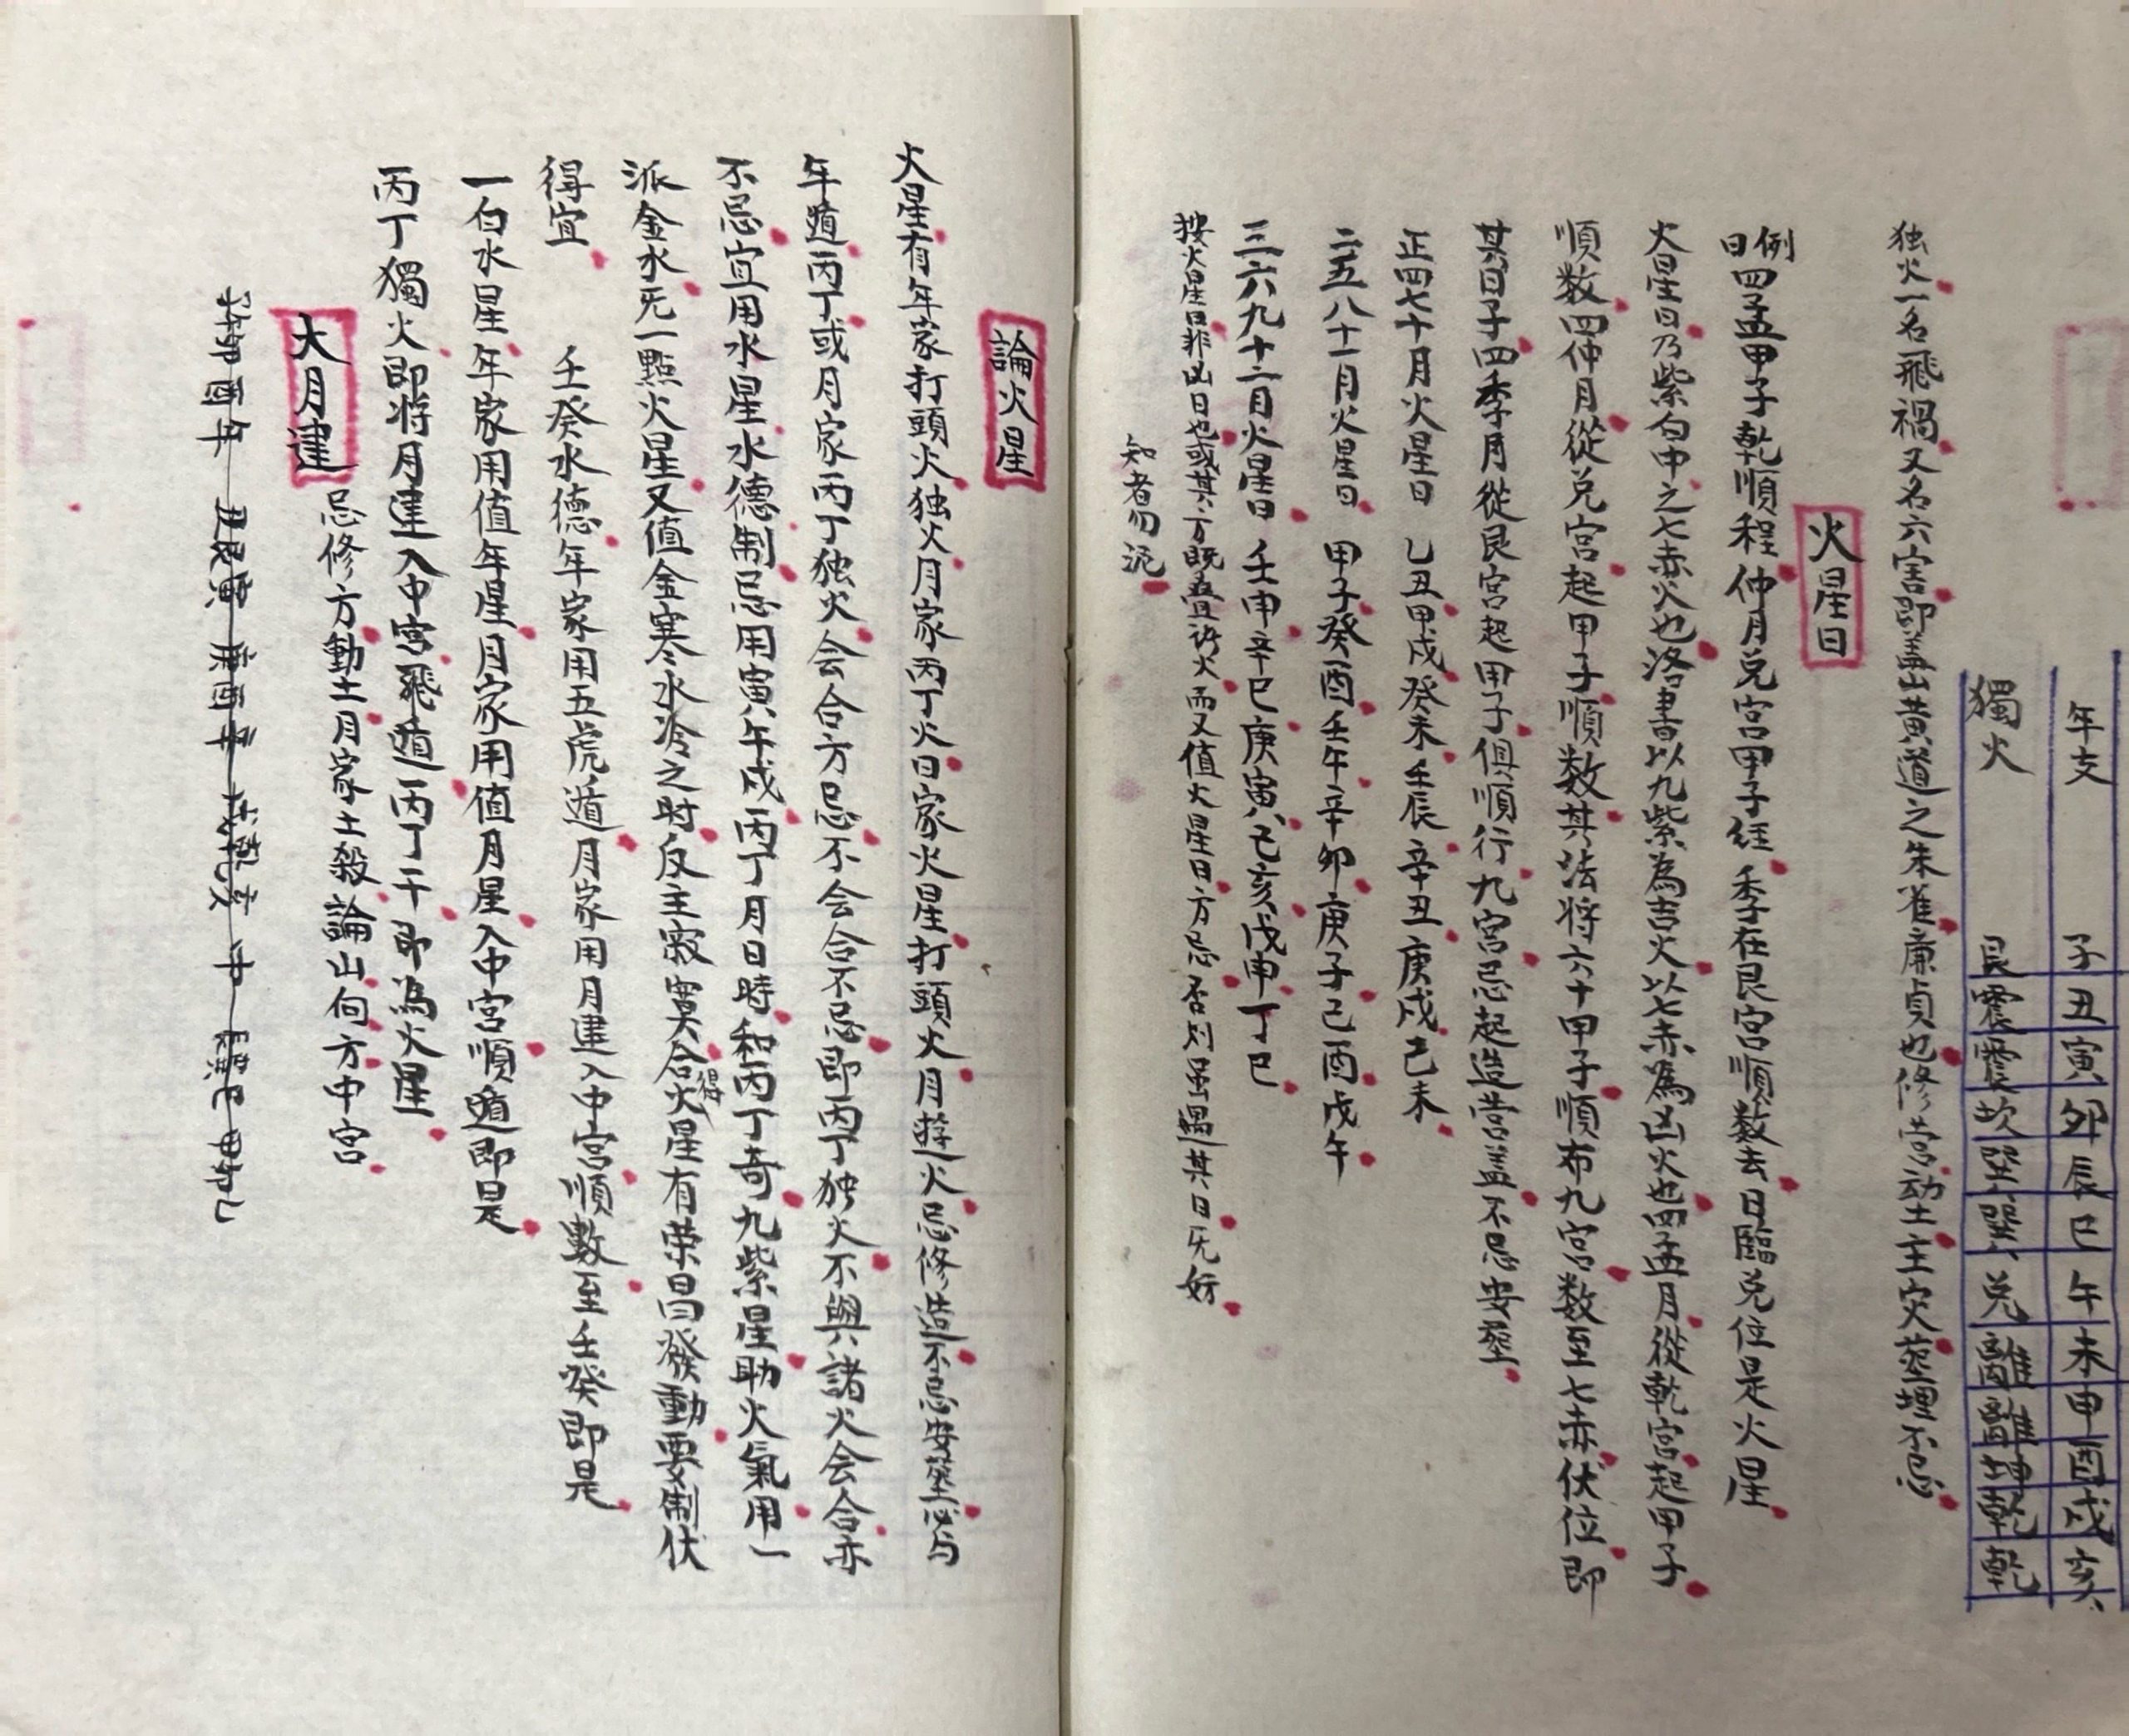 年支 子 丑 寅 卯 辰 巳 午 未 申 酉 戌 亥
獨火 艮 震 震 坎 巽 巽 兑 離 離 坤 乾 乾
独火一名飛禍又名六害即盖山黄道之朱雀廉貞也修营动土主灾葬埋不忌
火星日
例曰四孟甲子乾順程仲月兑宫甲子経季在艮宫順数去日臨兑位是火星
火星日乃紫白中之七赤火也洛書以九紫為吉火以七赤為凶火也四孟月從乾宫起甲子
順数四仲月從兑宫起甲子順数其法将六十甲子順布九宫数至七赤伏位即
其日子四季月從艮宫起甲子俱順行九宫忌起造营盖不忌安葬
正四七十月火星日 乙丑甲戌癸未壬辰辛丑庚戌己未
二五八十一月火星日 甲子癸酉壬午辛卯庚子己酉戊午
三六九十二月火星日 壬申辛巳庚寅己亥戊申丁巳
按火星日非凶日也或其方既叠诸火而又值火星日方忌否则虽遇其日旡妨
知者勿泥
論火星
火星有年家打頭火独火月家丙丁火日家火星打頭火月遊火忌修造不忌安葬必与
年遁丙丁或月家丙丁独火会合方忌不会合不忌即丙丁独火不與諸火会合亦
不忌宜用水星水德制忌用寅午戌丙丁月日時和丙丁奇九紫星助火氣用一
派金水旡一點火星又值金寒水冷之时反主寂寞合得火星有荣昌發動要制伏
得宜 壬癸水德年家用五虎遁月家用月建入中宫順數至壬癸即是
一白水星年家用值年星月家用值月星入中宫順遁即是
丙丁獨火即将月建入中宫飛遁丙丁干即為火星
大月建 忌修方動土月家土殺論山向方中宫